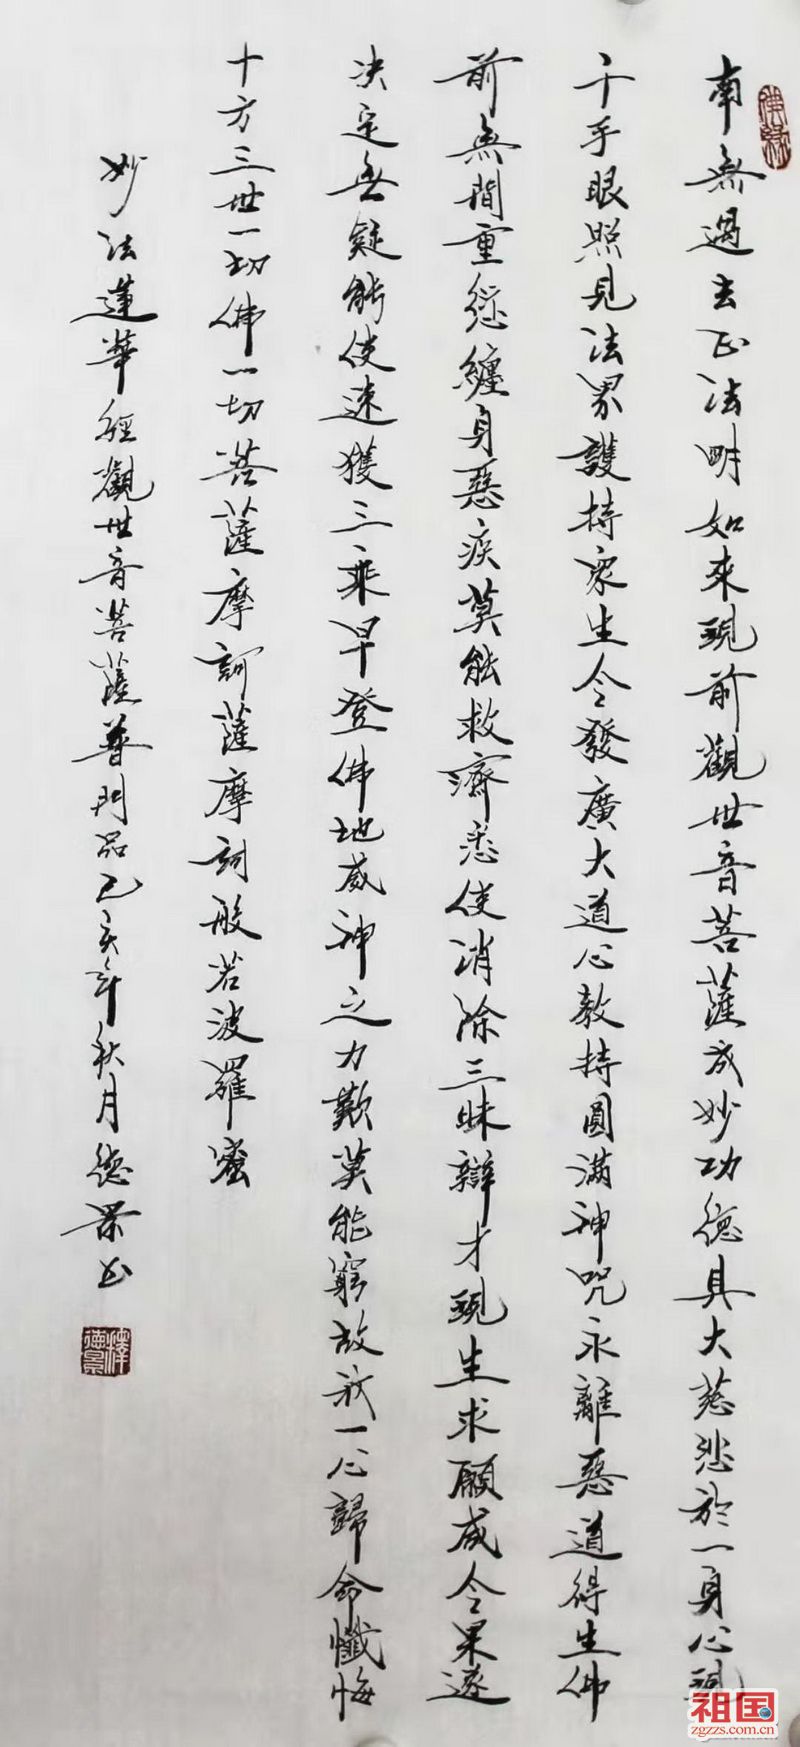 佛緣
南無過去正法明如來現前觀世音菩薩成妙功德具大慈悲於一身心現
千手眼照見法界護持衆生令發廣大道心教持圓滿神咒永離惡道得生佛
前無間重愆纏身惡疾莫能救濟悉使消除三昧辯才現生求願咸令果遂
決定無疑能使速獲三乘早登佛地威神之力歎莫能窮故我一心歸命懺悔
十方三世一切佛一切菩薩摩訶薩摩訶般若波羅蜜
妙法蓮華經觀世音菩薩普門品己亥年秋月德景书
德景
祖国
zgzzs.com.cn